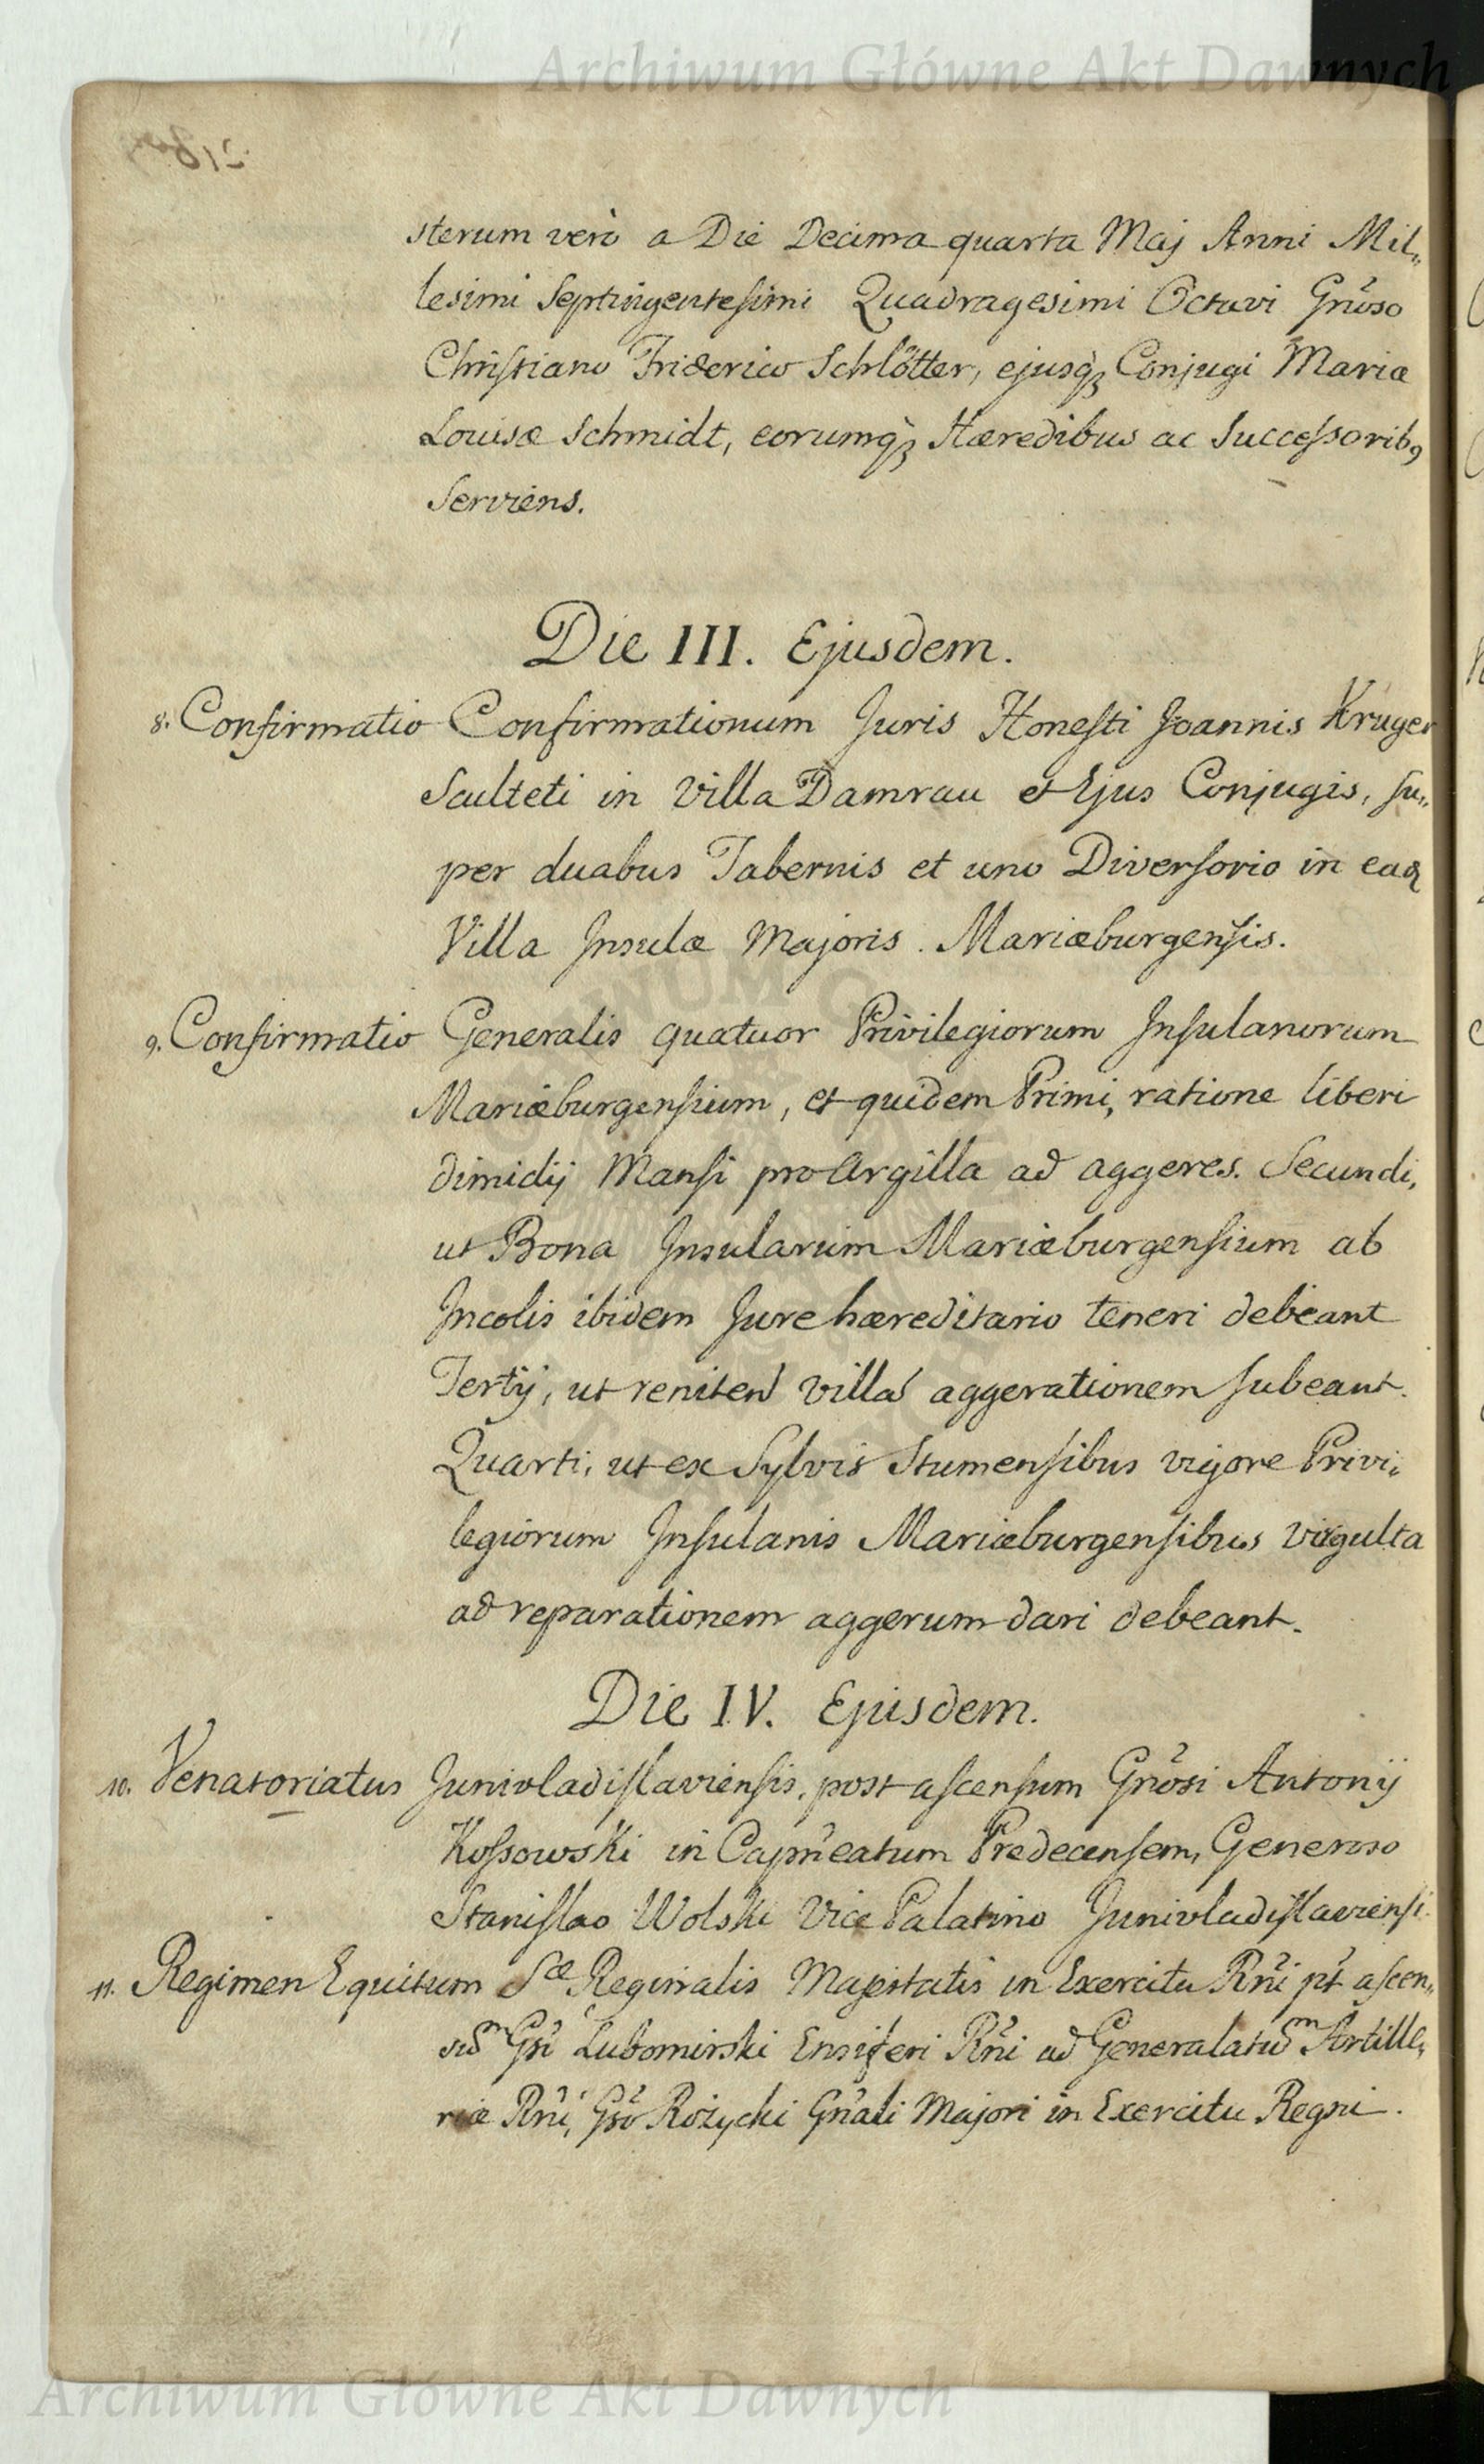 Archiwum Główne Akt Dawnych
sterum verò a Die Decima quarta Maj Anni Mil„
lesimi Septingentesimi Quadragesimi Octavi Gnõso
Christiano Friderico Schlötter, ejusq̃ Conjugi Mariæ
Louisæ Schmidt, eorumq̃ Hæredibus ac Successorib9
Serviens.
Die III. Ejusdem.
8. Confirmatio Confirmationum Juris Honesti Joannis Kruger
Sculteti in Villa Damrau et Ejus Conjugis, su„
per duabus Tabernis et uno Diversorio in eaq
Villa Insulæ Majoris Mariæburgensis.
9. Confirmatio Generalis quatuor Privilegiorum Insulanorum
Mariæburgensium, et quidem Primi, ratione liberi
dimidij Mansi pro Argilla ad aggeres. Secundi,
ut Bona Insularum Mariæburgensium ab
Incolis ibidem Jure hæreditario teneri debeant
Tertij, ut reniten villa aggerationem subeant.
Quarti, ut ex Sylvis Stumensibus vigore Privi„
legiorum Insulanis Mariæburgensibus virgulta
ad reparationem aggerum dari debeant.
Die IV. Ejusdem.
10. Venatoriatus Junivladislaviensis, post ascensum Gnõsi Antonij
Kossowski in Capneatum Predecensem, Generoso
Stanislao Wolski Vice Palatino Junivladislaviensi.
11. Regimen Equitum Sæ Reginalis Majestatis in Exercitu Rñi pt̃ ascen„
sum Gsi Lubomirski Ensiferi Rñi ad Generalatum Artille„
riæ Rñi, Gsõ Rożycki Gñali Majori in Exercitu Regni.
Archiwum Główne Akt Dawnych